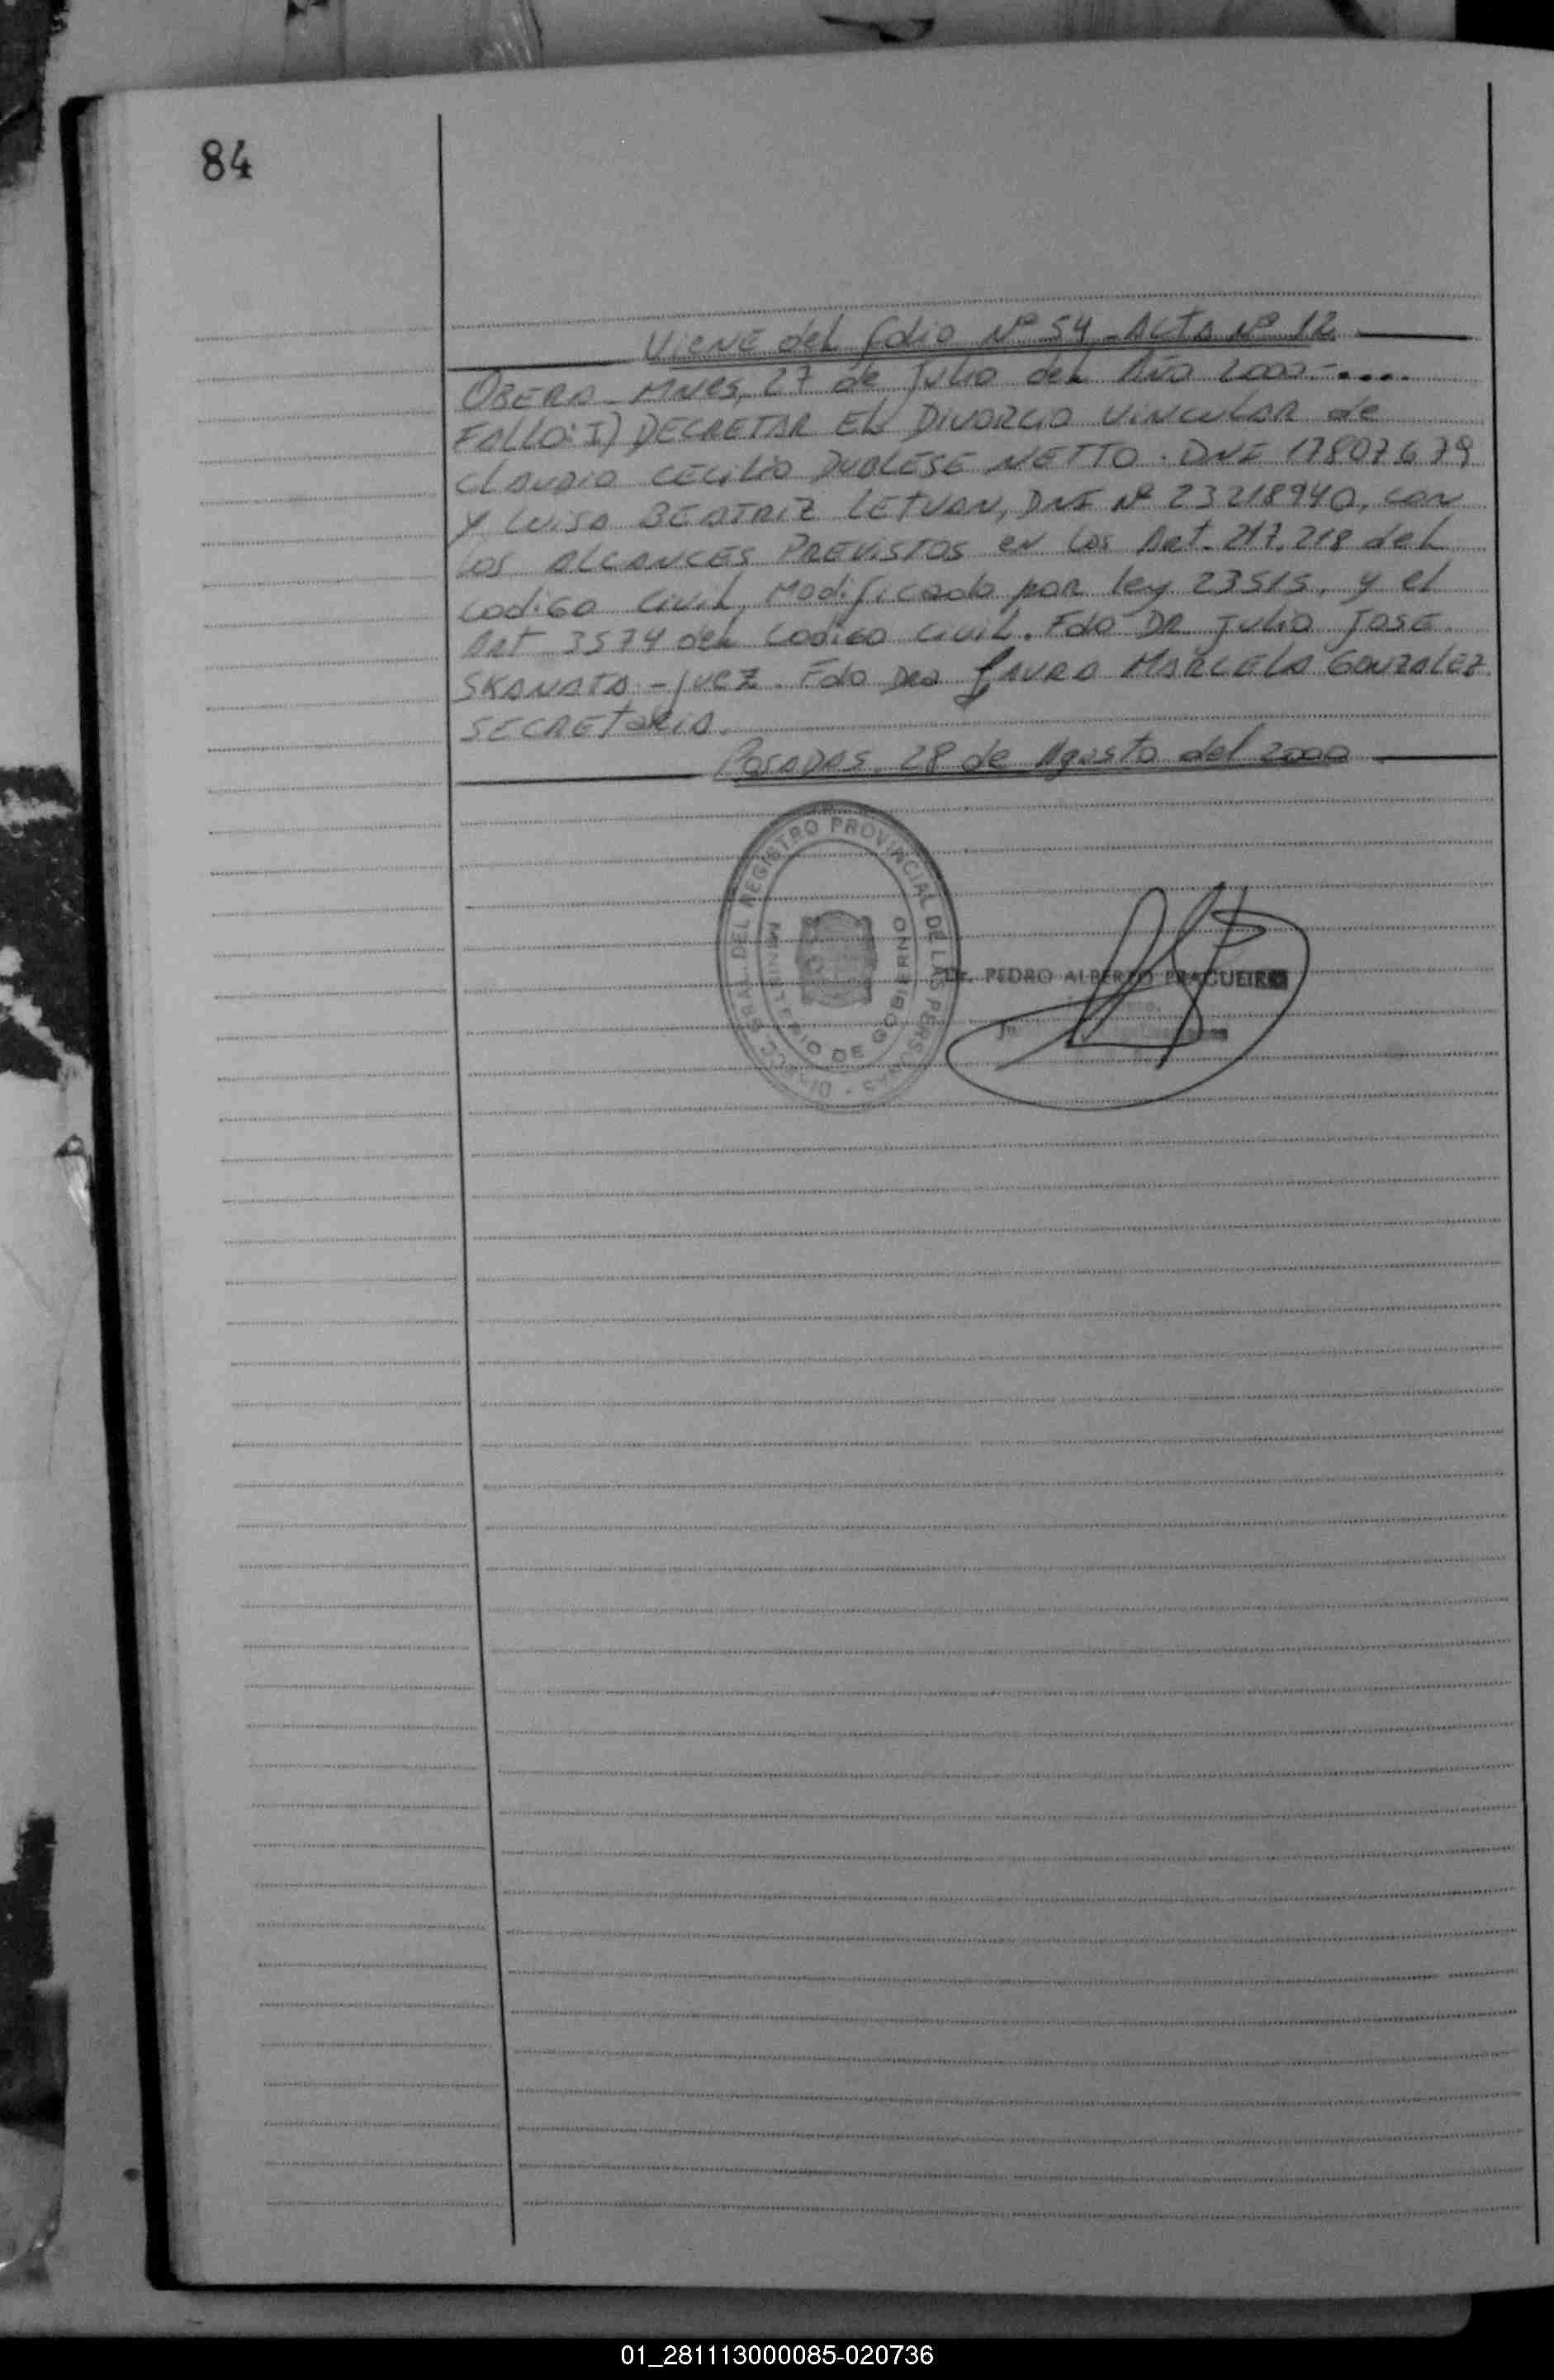 84
Viene del folio Nº 54 - Acta Nº 12
OBERA - MNES, 27 de Julio del Año 2000 -....
FALLO: I) DECRETAR EL DIVORCIO VINCULAR de
CLAUDIO CECILIO DUBLESE NETTO. DNI 17807679
Y LUISA BEATRIZ LETVAN, DNI Nº 23218940, CON
LOS ALCANCES PREVISTOS EN Los Art. 217, 218 del
CODIGO CIVIL, Modificado por ley 23515, y el
Art 3574 del CODIGO CIVIL. Fdo DR Julio JOSE
SKANATA - JUEZ. Fdo Dra LAURA MARCELA GONZALEZ
SECRETARIA.
POSADAS, 28 de Agosto del 2000
DIRECC. GRAL. DEL REGISTRO PROVINCIAL DE LAS PERSONAS -
MINISTERIO DE GOBIERNO
Dr. PEDRO ALBERTO FRAGUEIRO
01_281113000085-020736